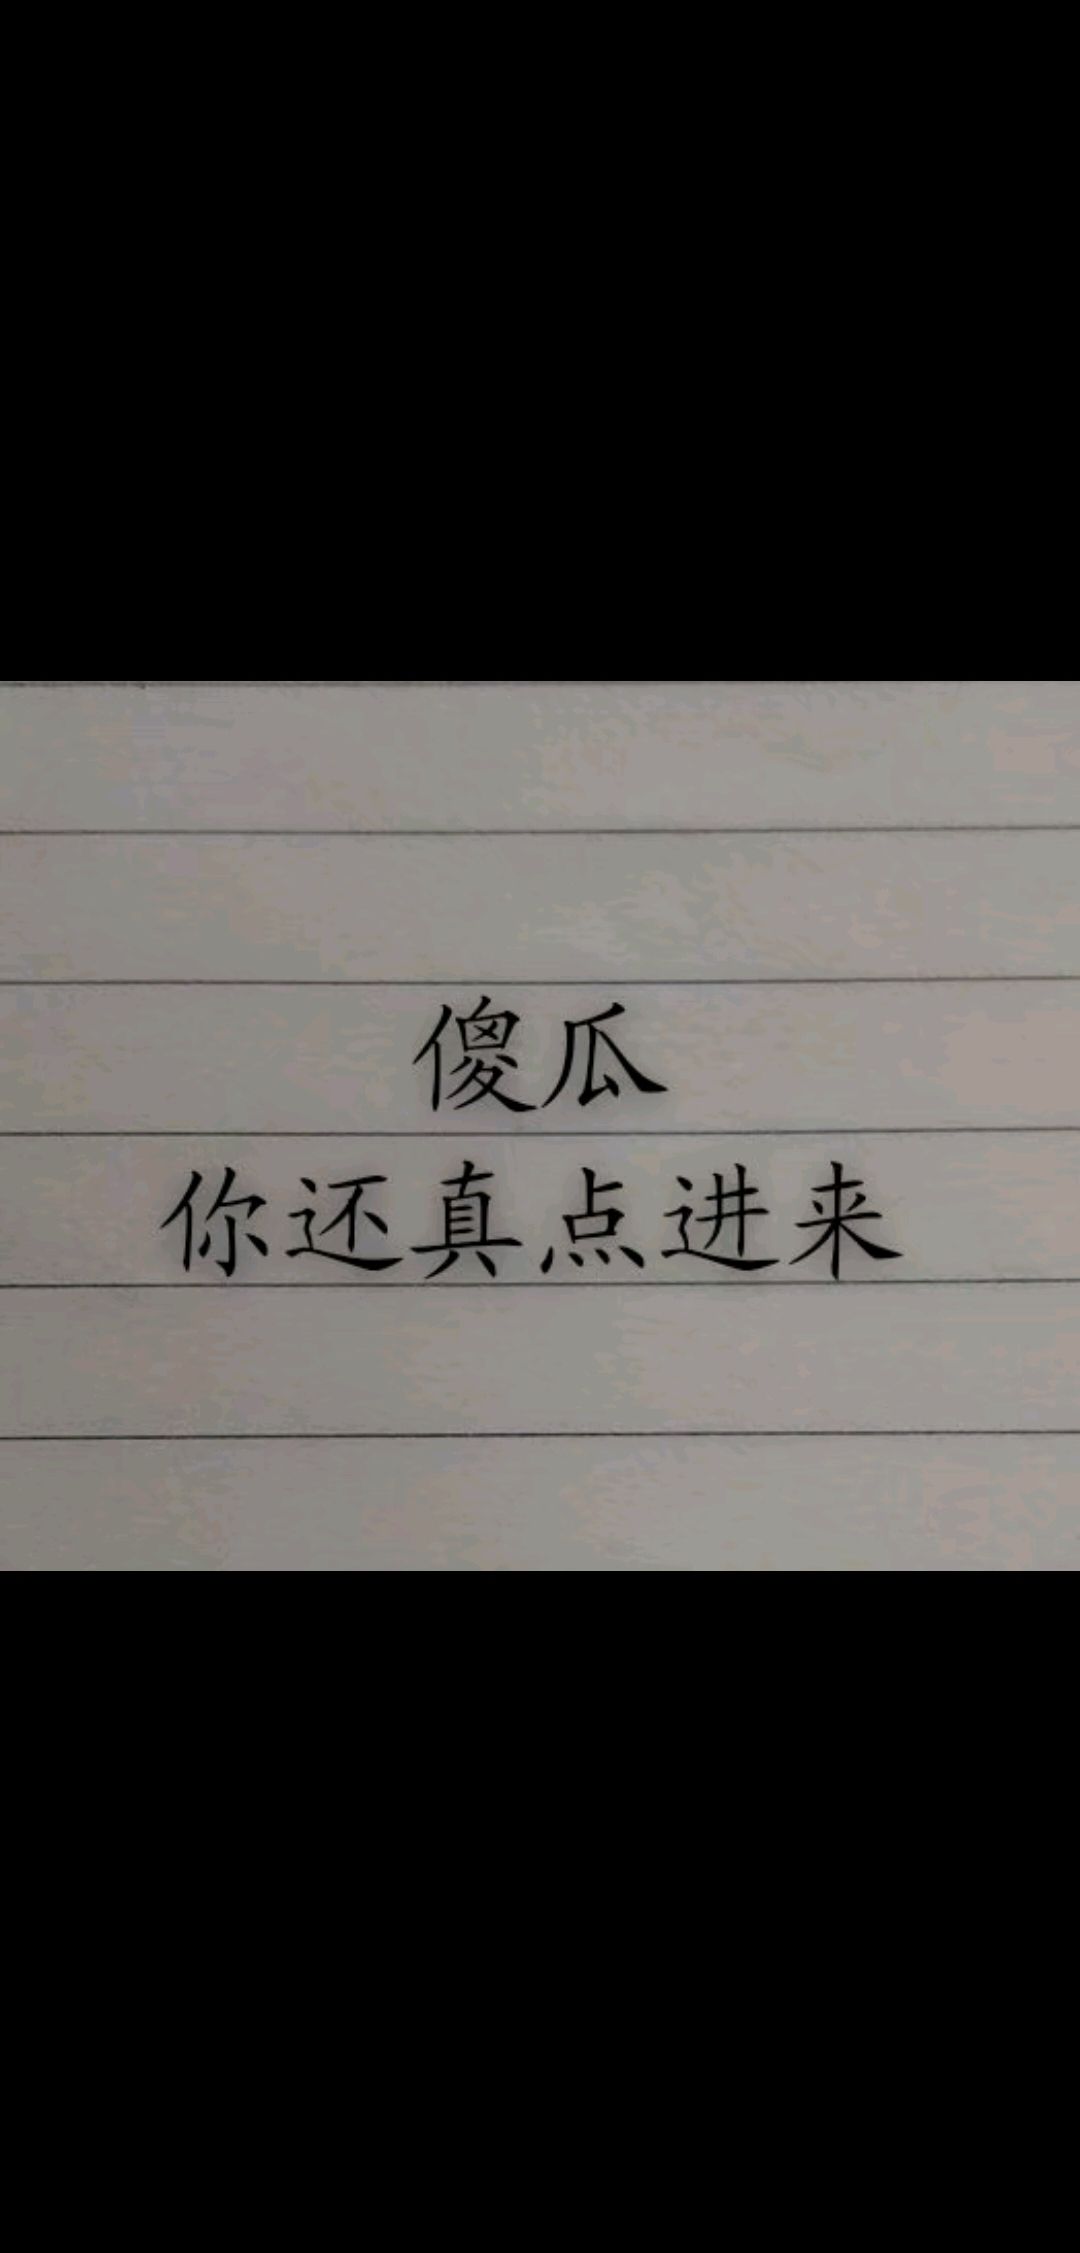 傻瓜
你还真点进来